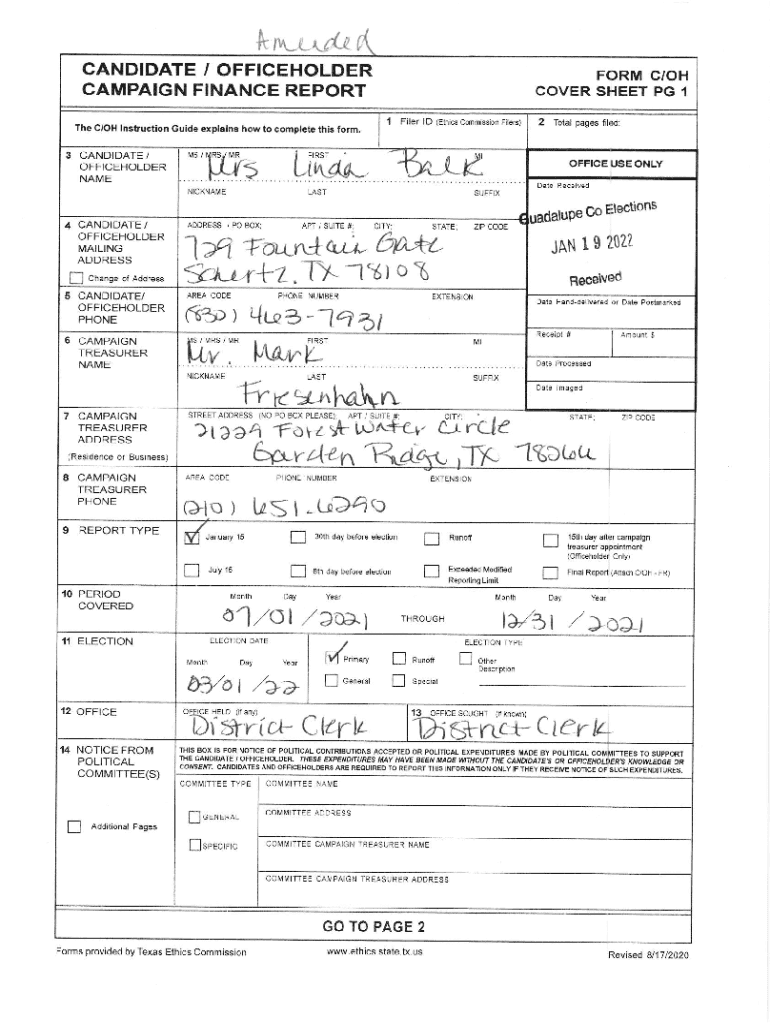 Amended
CANDIDATE / OFFICEHOLDER
CAMPAIGN FINANCE REPORT
FORM C/OH
COVER SHEET PG 1
The C/OH Instruction Guide explains how to complete this form.
1 Filer ID (Ethics Commission Filers)
2 Total pages filed:
3 CANDIDATE / OFFICEHOLDER NAME
MS / MRS / MR FIRST MI
Mrs Linda Balk
NICKNAME LAST SUFFIX
OFFICE USE ONLY
Date Received
Guadalupe Co Elections
JAN 19 2022
Received
4 CANDIDATE / OFFICEHOLDER MAILING ADDRESS
Change of Address
ADDRESS / PO BOX; APT / SUITE #; CITY; STATE; ZIP CODE
729 Fountain Gate
Schertz, TX 78108
5 CANDIDATE/ OFFICEHOLDER PHONE
AREA CODE PHONE NUMBER EXTENSION
(830) 463-7931
Date Hand-delivered or Date Postmarked
Receipt # Amount $
Date Processed
Date Imaged
6 CAMPAIGN TREASURER NAME
MS / MRS / MR FIRST MI
Mr. Mark
NICKNAME LAST SUFFIX
Friesenhahn
7 CAMPAIGN TREASURER ADDRESS
(Residence or Business)
STREET ADDRESS (NO PO BOX PLEASE); APT / SUITE #; CITY; STATE; ZIP CODE
21229 Forest Water Circle
Garden Ridge, TX 78266
8 CAMPAIGN TREASURER PHONE
AREA CODE PHONE NUMBER EXTENSION
(210) 651-6290
9 REPORT TYPE
January 15
30th day before election
Runoff
15th day after campaign treasurer appointment (Officeholder Only)
July 15
8th day before election
Exceeded Modified Reporting Limit
Final Report (Attach C/OH - FR)
10 PERIOD COVERED
Month Day Year
07/01/2021
THROUGH
Month Day Year
12/31/2021
11 ELECTION
ELECTION DATE
Month Day Year
03/01/22
ELECTION TYPE
Primary
Runoff
Other Description
General
Special
12 OFFICE
OFFICE HELD (if any)
District Clerk
13 OFFICE SOUGHT (if known)
District Clerk
14 NOTICE FROM POLITICAL COMMITTEE(S)
Additional Pages
THIS BOX IS FOR NOTICE OF POLITICAL CONTRIBUTIONS ACCEPTED OR POLITICAL EXPENDITURES MADE BY POLITICAL COMMITTEES TO SUPPORT
THE CANDIDATE / OFFICEHOLDER. THESE EXPENDITURES MAY HAVE BEEN MADE WITHOUT THE CANDIDATE'S OR OFFICEHOLDER'S KNOWLEDGE OR
CONSENT. CANDIDATES AND OFFICEHOLDERS ARE REQUIRED TO REPORT THIS INFORMATION ONLY IF THEY RECEIVE NOTICE OF SUCH EXPENDITURES.
COMMITTEE TYPE
GENERAL
SPECIFIC
COMMITTEE NAME
COMMITTEE ADDRESS
COMMITTEE CAMPAIGN TREASURER NAME
COMMITTEE CAMPAIGN TREASURER ADDRESS
GO TO PAGE 2
Forms provided by Texas Ethics Commission
www.ethics.state.tx.us
Revised 8/17/2020